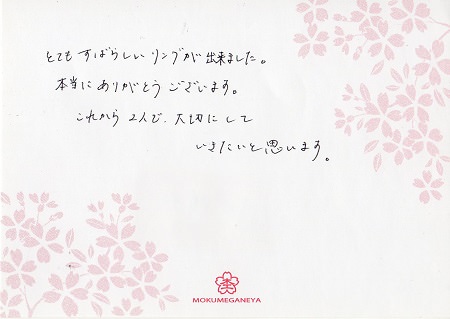 とても すばらしい リングが 出来ました。
本当に ありがとう ございます。
これから 2人で、大切にして
いきたいと思います。
MOKUMEGANEYA